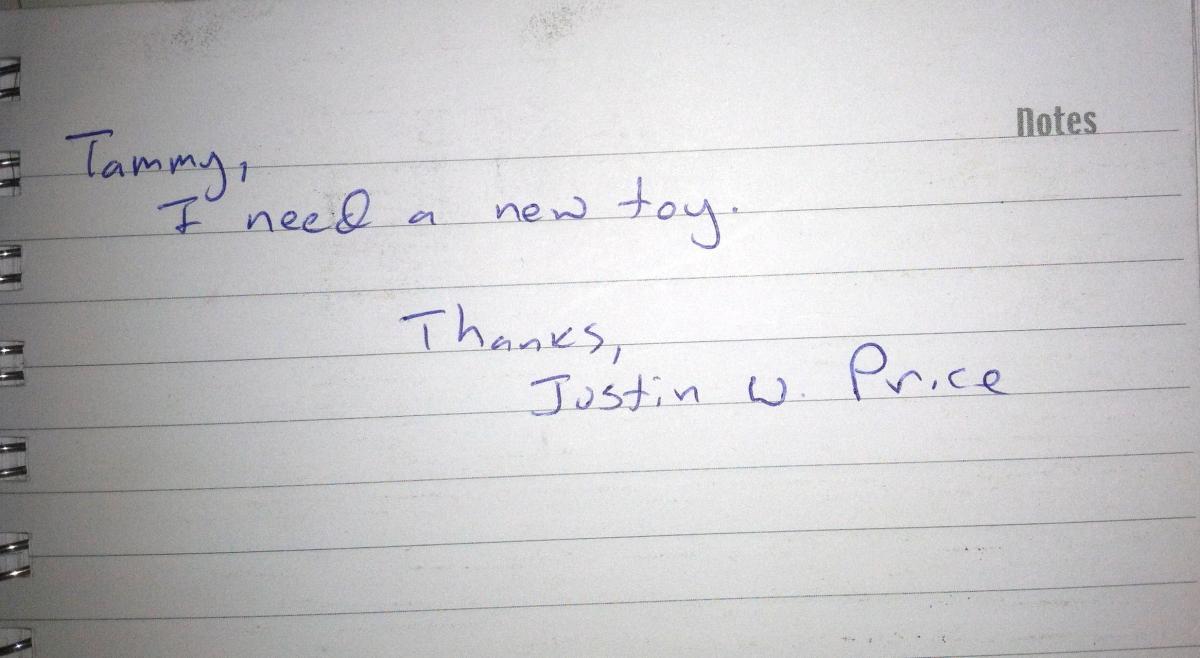 Notes
Tammy,
I need a new toy.
Thanks,
Justin W. Price